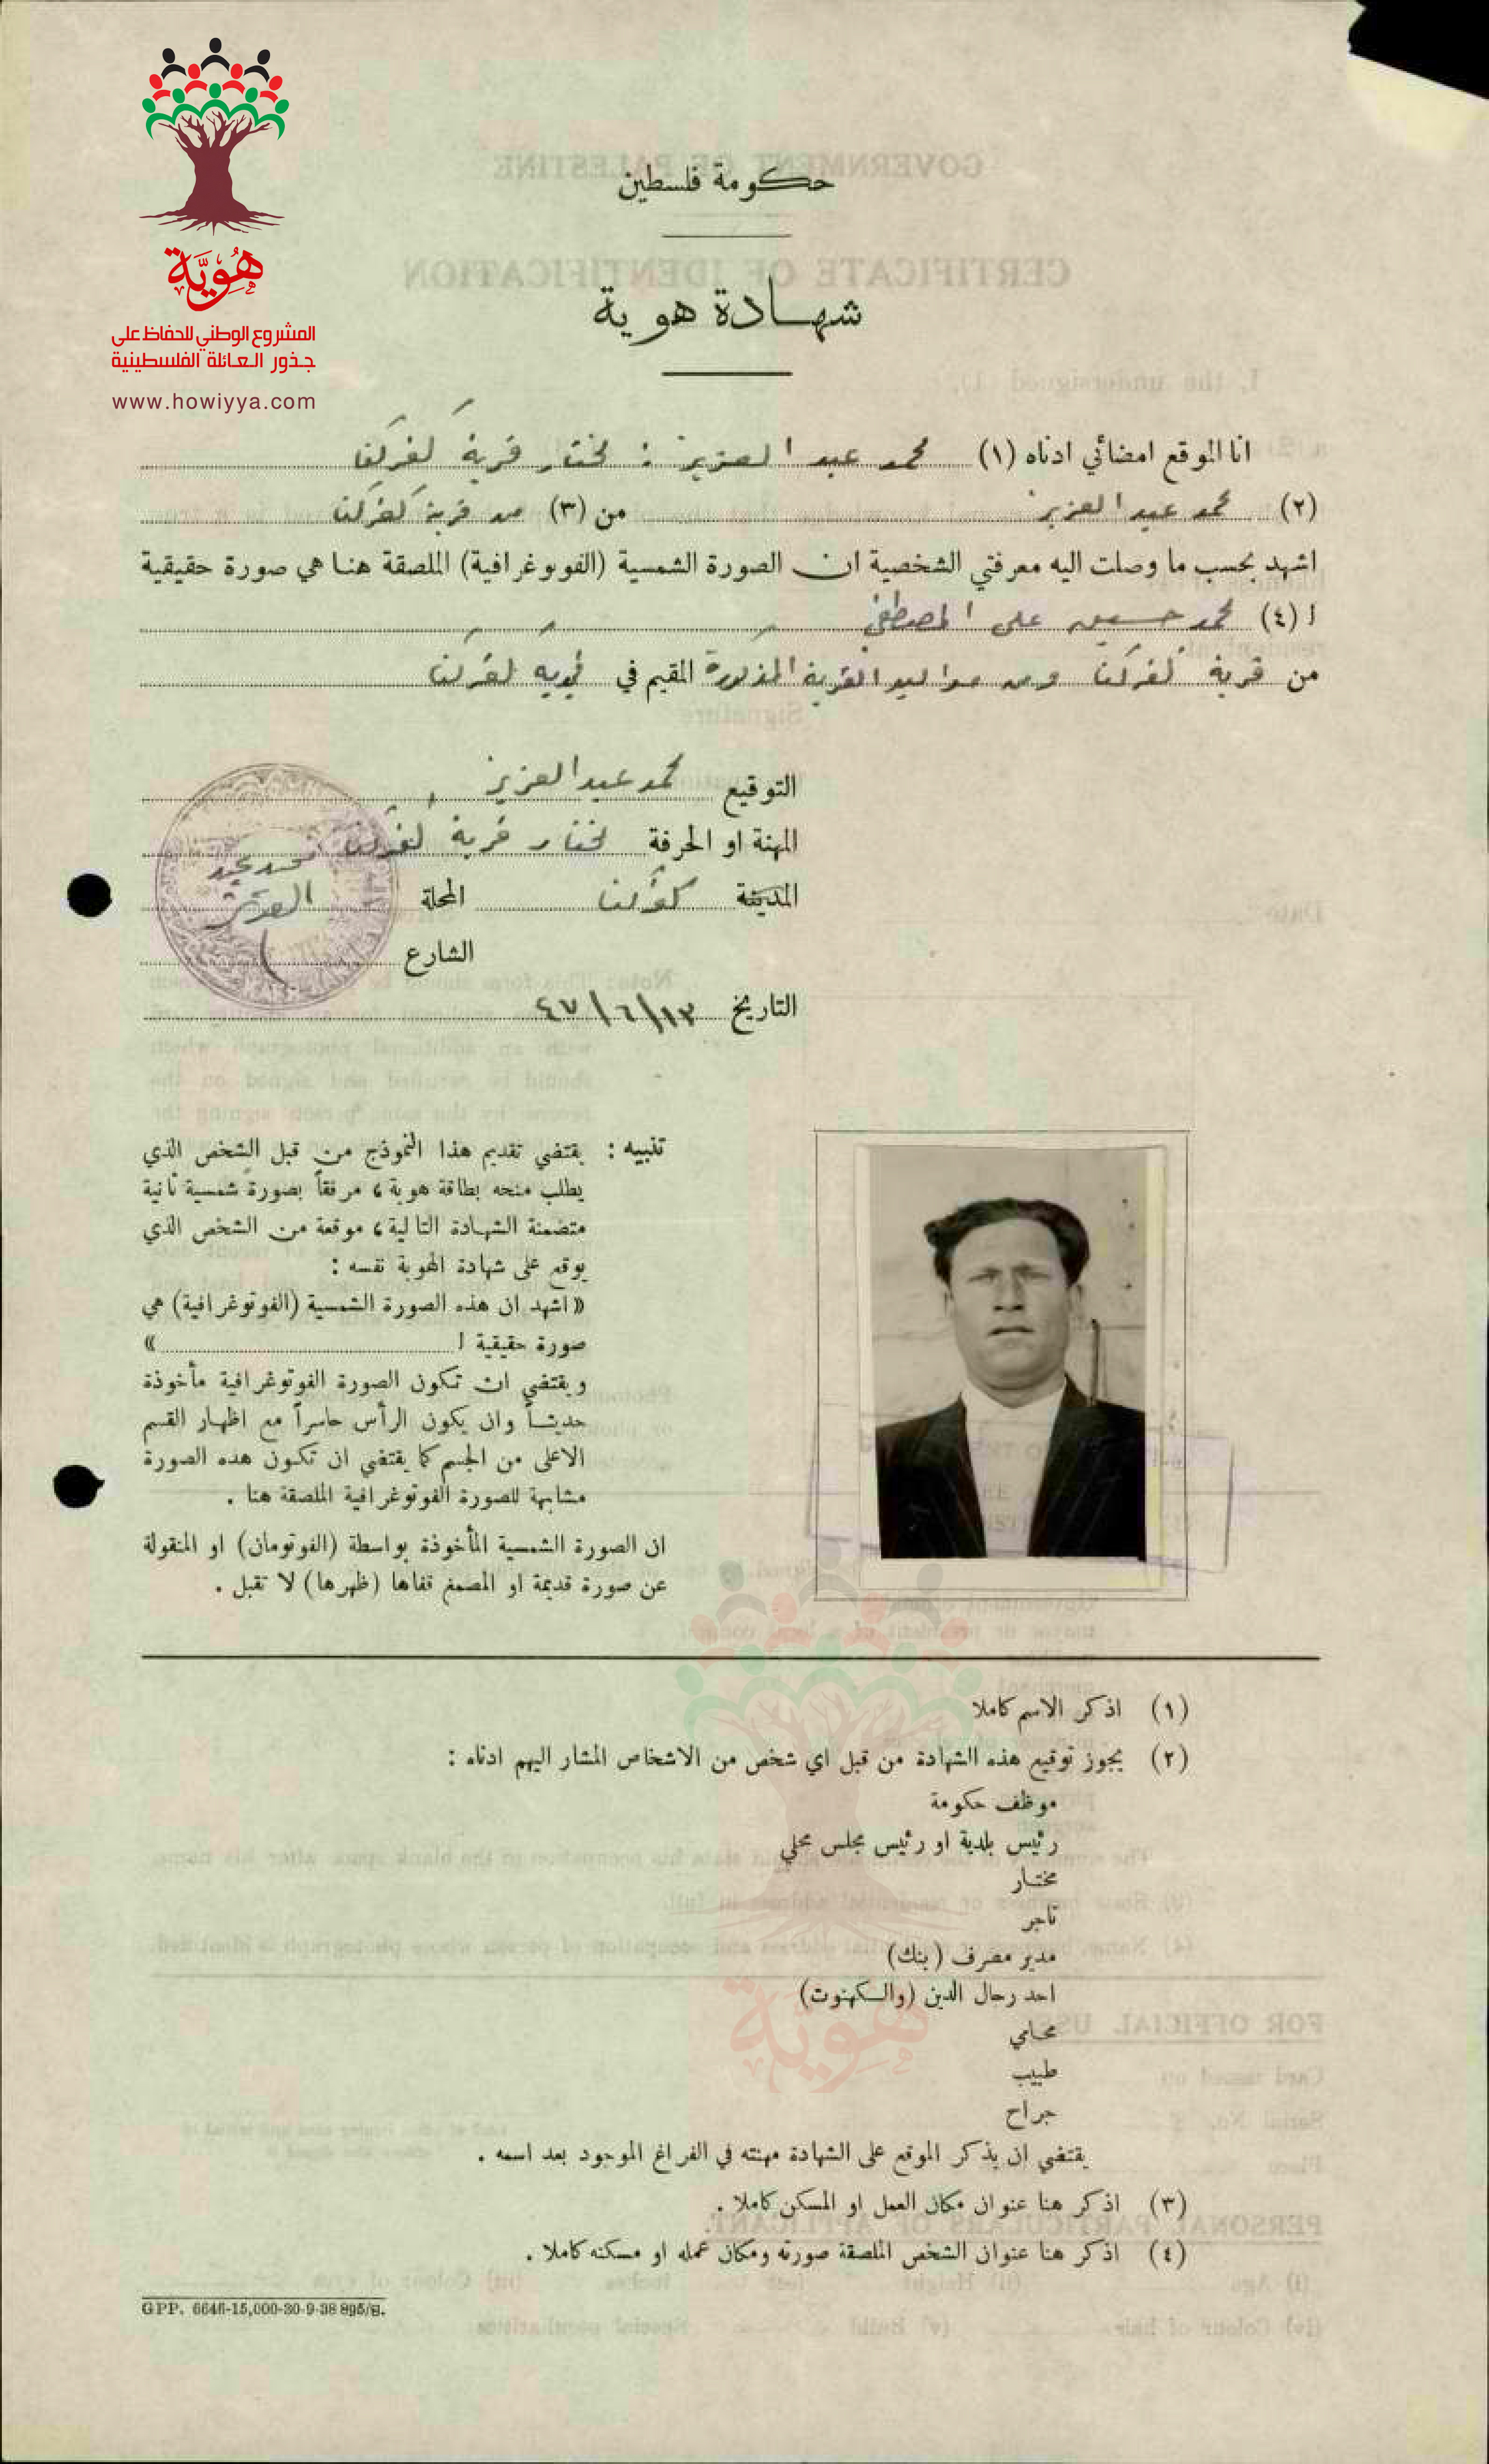 هوية
المشروع الوطني للحفاظ على
جذور العائلة الفلسطينية
www.howiyya.com
حكومة فلسطين
شهادة هوية
انا الموقع امضائي ادناه (١) محمد عبد العزيز : مختار قرية كفركنا
(٢) محمد عبد العزيز من (٣) من قرية كفركنا
اشهد بحسب ما وصلت اليه معرفتي الشخصية ان الصورة الشمسية (الفوتوغرافية) الملصقة هنا هي صورة حقيقية
ل (٤) محمد حسين علي المصطفى
من قرية كفركنا ومن مواليد القرية المذكورة المقيم في قرية كفركنا
التوقيع محمد عبد العزيز
المهنة او الحرفة مختار قرية كفركنا
المدينة كفركنا المحلة
الشارع
محمد عبد
العزيز
التاريخ ١٣/٦/٤٧
تنبيه : يقتضي تقديم هذا النموذج من قبل الشخص الذي
يطلب منحه بطاقة هوية ، مرفقاً بصورة شمسية ثانية
متضمنة الشهادة التالية ، موقعة من الشخص الذي
يوقع على شهادة الهوية نفسه :
« اشهد ان هذه الصورة الشمسية (الفوتوغرافية) هي
صورة حقيقية ل »
ويقتضي ان تكون الصورة الفوتوغرافية مأخوذة
حديثاً وان يكون الرأس حاسراً مع اظهار القسم
الاعلى من الجسم كما يقتضي ان تكون هذه الصورة
مشابهة للصورة الفوتوغرافية الملصقة هنا .
ان الصورة الشمسية المأخوذة بواسطة (الفوتومان) او المنقولة
عن صورة قديمة او المصمغ قفاها (ظهرها) لا تقبل .
(١) اذكر الاسم كاملا
(٢) يجوز توقيع هذه الشهادة من قبل اي شخص من الاشخاص المشار اليهم ادناه :
موظف حكومة
رئيس بلدية او رئيس مجلس محلي
مختار
تاجر
مدير مصرف (بنك)
احد رجال الدين (والكهنوت)
محامي
طبيب
جراح
يقتضي ان يذكر الموقع على الشهادة مهنته في الفراغ الموجود بعد اسمه .
(٣) اذكر هنا عنوان مكان العمل او المسكن كاملا .
(٤) اذكر هنا عنوان الشخص الملصقة صورته ومكان عمله او مسكنه كاملا .
GPP. 6646-15,000-30-9-38 895/s.
هوية